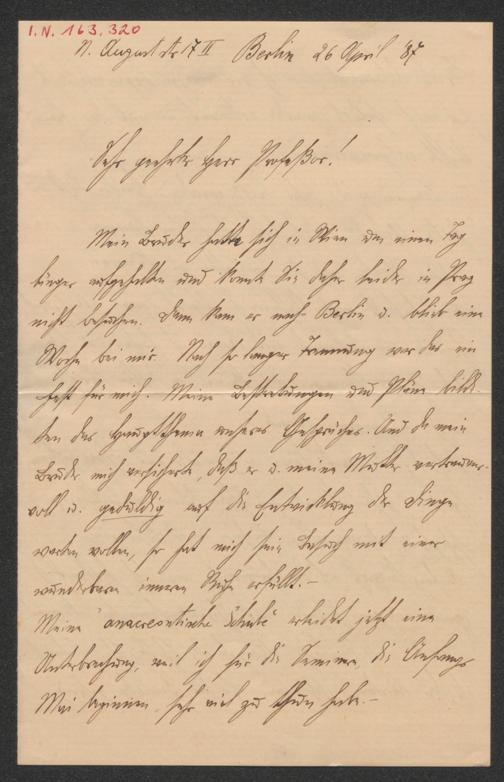 I.N. 163.320
N. Auguststr 17 II Berlin 26 April '87
Sehr geehrter Herr Professor!
Mein Bruder hatte sich in Wien um einen Tag
länger aufgehalten und konnte Sie daher leider in Prag
nicht besuchen. Dann kam er nach Berlin u. blieb eine
Woche bei mir. Nach so langer Trennung war das ein
Fest für mich. Meine Bestrebungen und Pläne bilde-
ten das Hauptthema unseres Gespräches. Und da mein
Bruder mich versicherte, daß er u. meine Mutter vertrauens-
voll u. geduldig auf die Entwicklung der Dinge
warten wollen, so hat mich sein Besuch mit einer
wunderbaren inneren Ruhe erfüllt.–
Meine "anacreontische Studie" erleidet jetzt eine
Unterbrechung, weil ich für die Seminare, die Anfangs
Mai beginnen, sehr viel zu thun habe.–